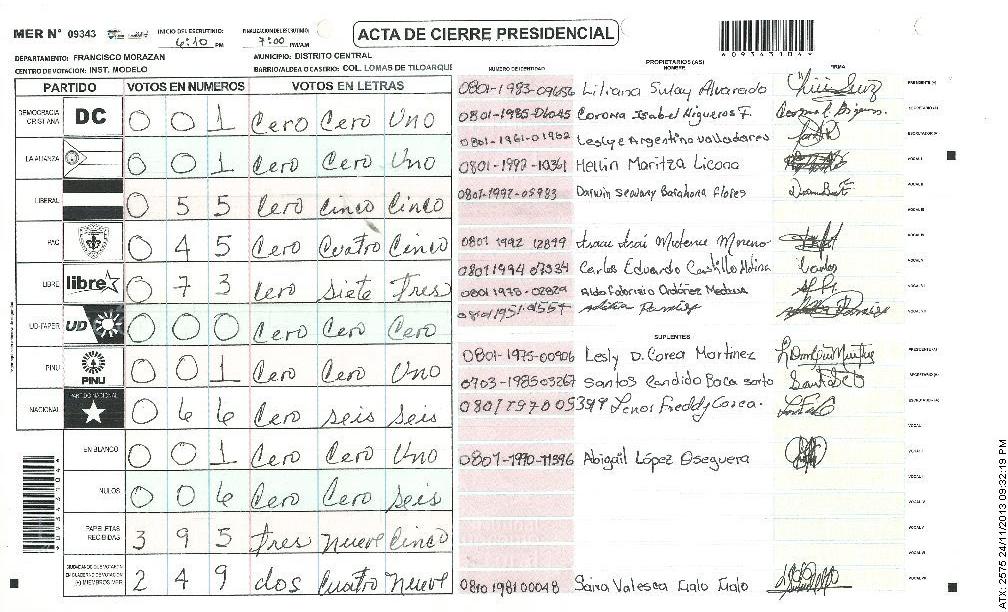 MER N° 09343 INICIO DEL ESCRUTINIO: 6:10 PM FINALIZACION DEL ESCRUTINIO: 7:00 PM/AM ACTA DE CIERRE PRESIDENCIAL
DEPARTAMENTO: FRANCISCO MORAZAN MUNICIPIO: DISTRITO CENTRAL
CENTRO DE VOTACION: INST. MODELO BARRIO/ALDEA O CASERIO: COL. LOMAS DE TILOARQUE
PARTIDO VOTOS EN NUMEROS VOTOS EN LETRAS
DEMOCRACIA CRISTIANA DC 0 0 1 Cero Cero Uno
LA ALIANZA 0 0 1 Cero Cero Uno
LIBERAL 0 5 5 Cero Cinco Cinco
PAC 0 4 5 Cero Cuatro Cinco
LIBRE libre 0 7 3 Cero siete Tres
UD-FAPER UD 0 0 0 Cero Cero Cero
PINU PINU 0 0 1 Cero Cero Uno
NACIONAL PARTIDO NACIONAL 0 6 6 Cero seis seis
EN BLANCO 0 0 1 Cero Cero Uno
NULOS 0 0 6 Cero Cero seis
PAPELETAS RECIBIDAS 3 9 5 tres nueve Cinco
2 4 9 dos Cuatro nueve
NUMERO DE IDENTIDAD PROPIETARIOS (AS) NOMBRE FIRMA
0801-1983-09656 Liliana Sulay Alvarado
0801-1985-06045 Corona Isabel Nigueros F.
0801-1961-01962 Leslye Argentina Valladares
0801-1992-10361 Hellin Maritza Licona
0801-1992-05983 Darwin Barahona Flores
0801 1992 12819 Moreno
0801 1994 07334 Carlos Eduardo Castillo Molina
0801 1978-02829 Aldo Fabrizio Ordóñez
0801 1951-01554 Ramirez
SUPLENTES
0801-1975-00906 Lesly D. Corea Martinez
0703-198503267 Santos Candido Baca
Lenor Freddy Corea.
0801-1990-11396 Abigail López Oseguera
0810 1981 00048 Saira Valesca Lalo Lalo
ATX-2575 24/11/2013 09:32:19 PM